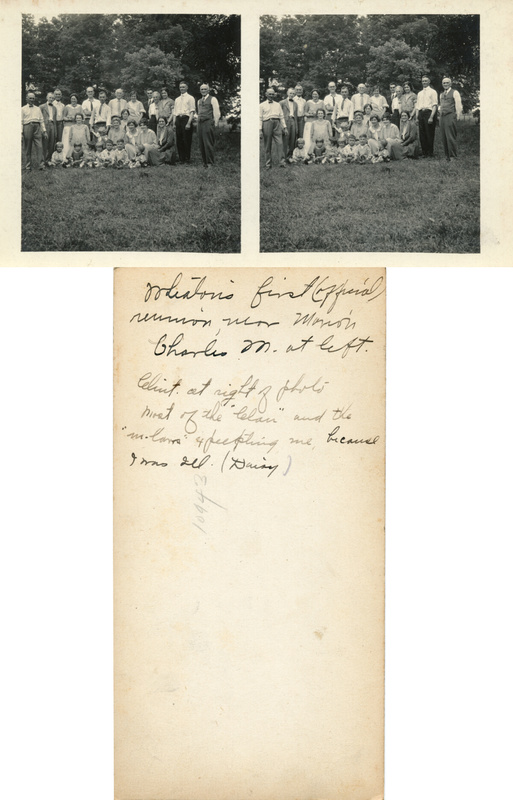 Wheaton's first (official)
reunion, near Marion
Charles M. at left.
Clint. at right of photo
Most of the "Clan" and the
"in-laws" excepting me, because
I was ill. (Daisy)